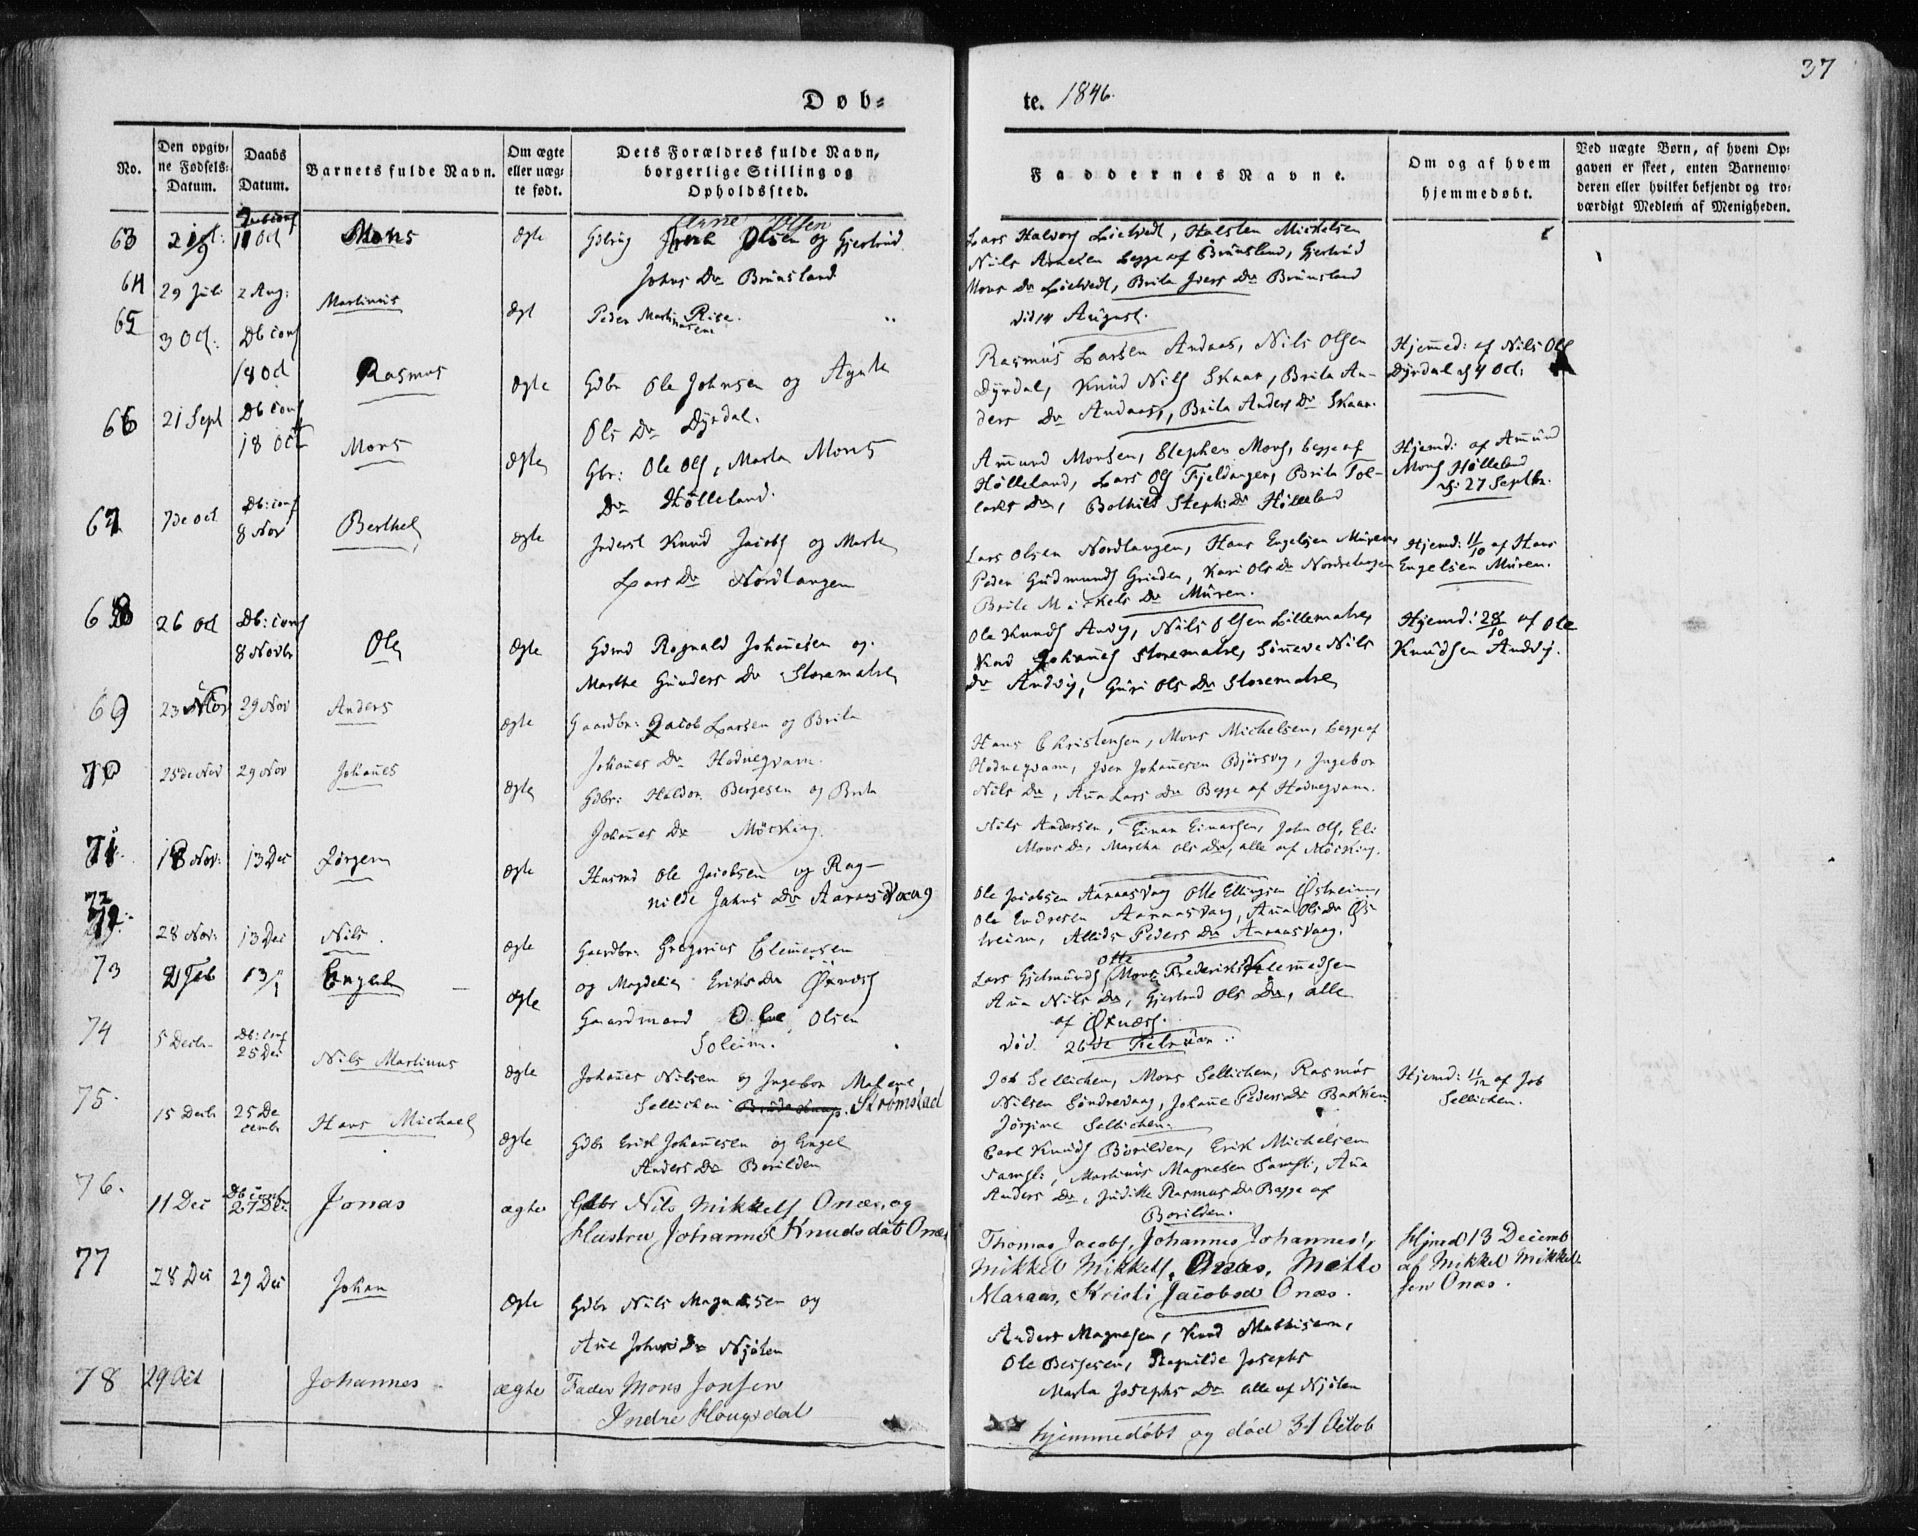 37
Døb-
te. 1846.
No.
Den opgiv-
ne Fødsels-
Datum.
Daabs
Datum.
Barnets fulde Navn.
Om ægte
eller uæg-
te født.
Dets Forældres fulde Navn,
borgerlige Stilling og
Opholdssted.
Faddernes Navne.
Om og af hvem
hjemmedøbt.
Ved uægte Børn, af hvem Op-
gaven er skeet, enten Barnemo-
deren eller hvilket bekjendt og tro-
værdigt Medlem af Menigheden.
63 21/9 11 Oct Mons Ægte
Arne Olsen
Olsen og Gjertrud
Johns Dr Brunsland
Lars Halvors Lietvedt, Halsten Mickelsen
Nils Arnesen begge af Brunsland, Gjertrud
Mons Dr Lietvedt, Brita Ivers Dr Brunsland
64 29 Juli 2 Aug: Martinus Ægt
Peder Martinusen Rise.
død 14 August.
65 3 Oct: Db conf
18 Oct Rasmus Ægte
Gdbr Ole Johnsen og Agate
Ols Dr Dyrdal.
Rasmus Larsen Andaas, Nils Olsen
Dyrdal, Knud Nils Skaar, Brita An-
ders Dr Andaas, Brita Anders Dr Skaar.
Hjemed: af Nils Ols
Dyrdal d 4 Oct:
66 21 Sept Db conf
18 Oct Mons Ægte
Gbr: Ole Ols, Marta Mons
Dr Hølleland.
Amund Monsen, Stephen Mons, begge af
Hølleland, Lars Ols Fjeldanger, Brita Tol-
leks Dr, Bothild Steph: Dr Hølleland
Hjemd: af Amund
Mons Hølleland
d: 27 Septbr.
67 7de Oct Db: conf
8 Nov Berthel Ægte
Inderst Knud Jacobs og Marte
Lars Dr Nordlangen
Lars Olsen Nordlangen, Hans Engelsen Muren,
Peder Gudmunds Grinden, Kari Ols Dr Nordrelangen
Brite Mickels Dr Muren.
Hjemd: 11/10 af Hans
Engelsen Muren.
68 26 Oct Db: conf
8 Novbr Ole Ægte
Gdmd Rognald Johanesen og
Marthe Gunders Dr Storematre
Ole Knuds Andvy, Nils Olsen Lillematre,
Knud Johanes Storematre, Sønneve Nils
Dr Andvig, Guri Ols Dr Storematre
Hjemd: 28/10 af Ole
Knudsen Andvy.
69 23 Nov 29 Nov Anders Ægte
Gaardbr: Jacob Larsen og Brita
Johanes Dr Hodnegvam.
Hans Christensen, Mons Michelsen, begge af
Hodnegvam, Iver Johanesen Bjørsvy, Ingebor
Nils Dr, Ana Lars Dr Begge af Hodnegvam.
70 25de Nov 29 Nov Johanes Ægte
Gdbr: Haldor Bergesen og Brita
Johanes Dr Møcking
Nils Andersen, Einar Einarsen, John Ols, Eli
Mons Dr, Martha Ols Dr, alle af Møcking.
71 18 Nov: 13 Dec Jørgen Ægte
Husmd Ole Jacobsen og Rag-
nilde Jahns Dr Aaraasvaag
Ole Jacobsen Aaraasvaag Otte Ellingsen Østreim,
Ole Endresen Aaraasvaag, Ana Ols Dr Øs-
treim, Allids Peders Dr Aaraasvaag.
72 28 Nov: 13 Dec Nils. Ægte
Gaardbr: Gregorius Clemensen
og Magdeli Eriks Dr Øknæs
Lars Gjelmunds, Otte Mons, Frederik Klemedsen
Ana Nils Dr, Gjertrud Ols Dr, alle
af Øknæs.
73 21 Feb 13/1 Engelk Ægte
Gaardmand Ole Olsen
Soleim.
død 26de Februar
74 5 Decbr Db: conf
25 Dec Nils Martinus Ægte
Johanes Nilsen og Ingebor Malene
Sellichen Strømstad
Job Sellichen, Mons Sellichen, Rasmus
Nilsen Søndrevaag, Johane Peders Dr Bakken
Jørgine Sellichen.
Hjemd: 11/12 af Job
Sellichen.
75. 15 Decbr 25 De
cembr Hans Michael Ægte
Gdbr Erik Johanesen og Engel
Anders Dr Børilden
Carl Knuds Børilden, Erik Michelsen
Samst:, Martinus Magnesen Samst:, Ana
Anders Dr, Judithe Rasmus Dr Begge af
Børilden.
76. 11 Dec Db conf
27 Dec Jonas ægte
Gdbr Nils Mikkels Onæs, og
Hustru Johanne Knudsdat Onæs
Thomas Jacobs, Johannes Johannes,
Mikkel Mikkels, Onæs, Mette
Maraas, Kristi Jacobsd Onæs.
Hjmed 13 Decemb
af Mikkel Mikkel-
sen Onæs.
77 28 Dec 29 Dec Johan Ægte
Gdbr Nils Magnesen og
Ane Johns Dr Njøten
Anders Magnesen, Knud Mathisen,
Ole Bergesen, Ragnilde Josephs
Marta Josephs Dr alle af Njøten
78 29 Oct Johannes ægte
Fader Mons Jonsen
Indre Hougsdal
hjemmedøbt og død 31 Octob